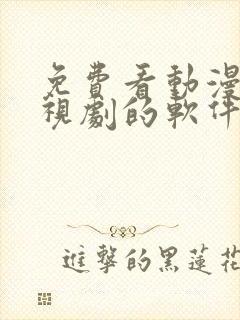 免費看動漫
視劇的軟件
進擊的黑蓮花